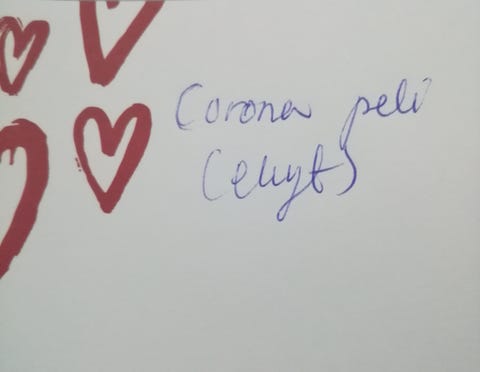 Corona peli
(ekyt)